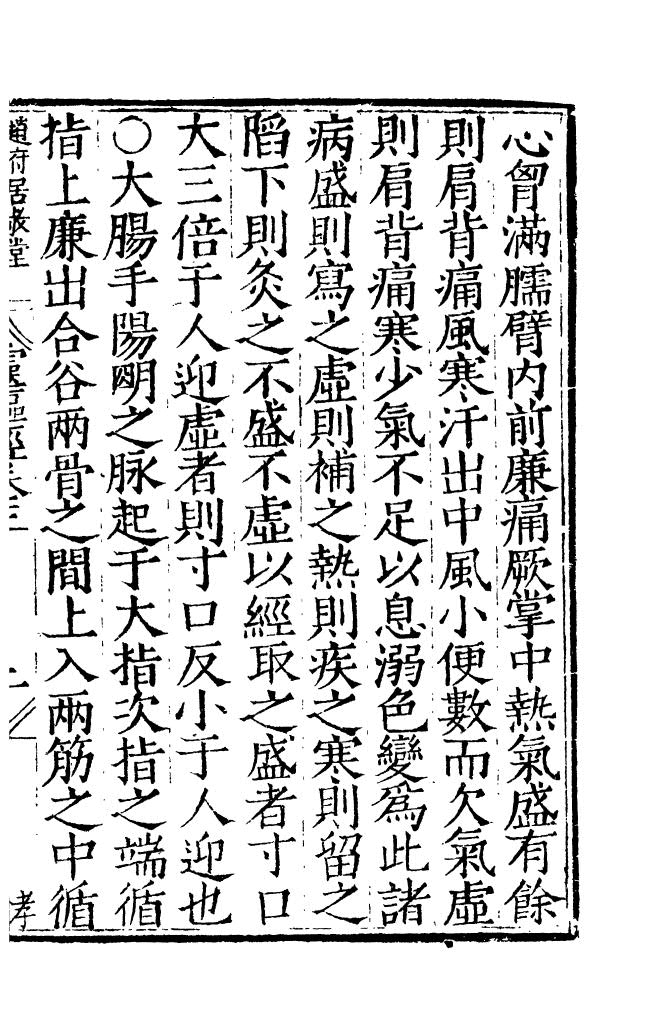 心胷滿臑臂内前廉痛厥掌中熱氣盛有餘
則肩背痛風寒汗出中風小便數而欠氣虛
則肩背痛寒少氣不足以息溺色變爲此諸
病盛則寫之虛則補之熱則疾之寒則留之
陷下則灸之不盛不虛以經取之盛者寸口
大三倍于人迎虛者則寸口反小于人迎也
○大腸手陽明之脉起于大指次指之端循
指上廉出合谷兩骨之間上入兩筋之中循
趙府居敬堂
靈樞經卷三
孝